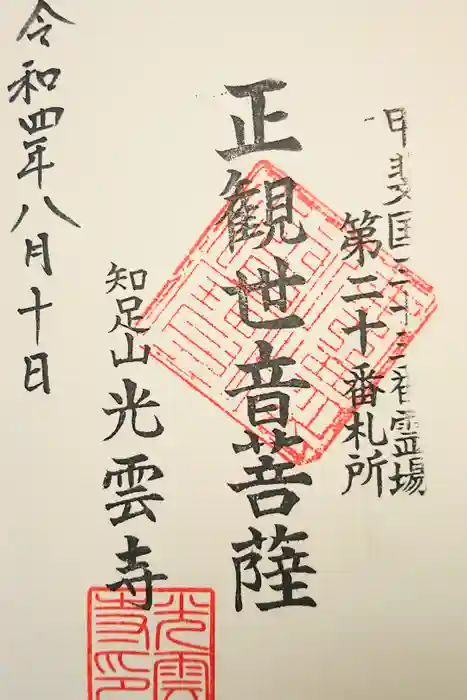 甲斐国三十三番霊場
第二十番札所
正観世音菩薩
知足山光雲寺
令和四年八月十日
光雲寺印